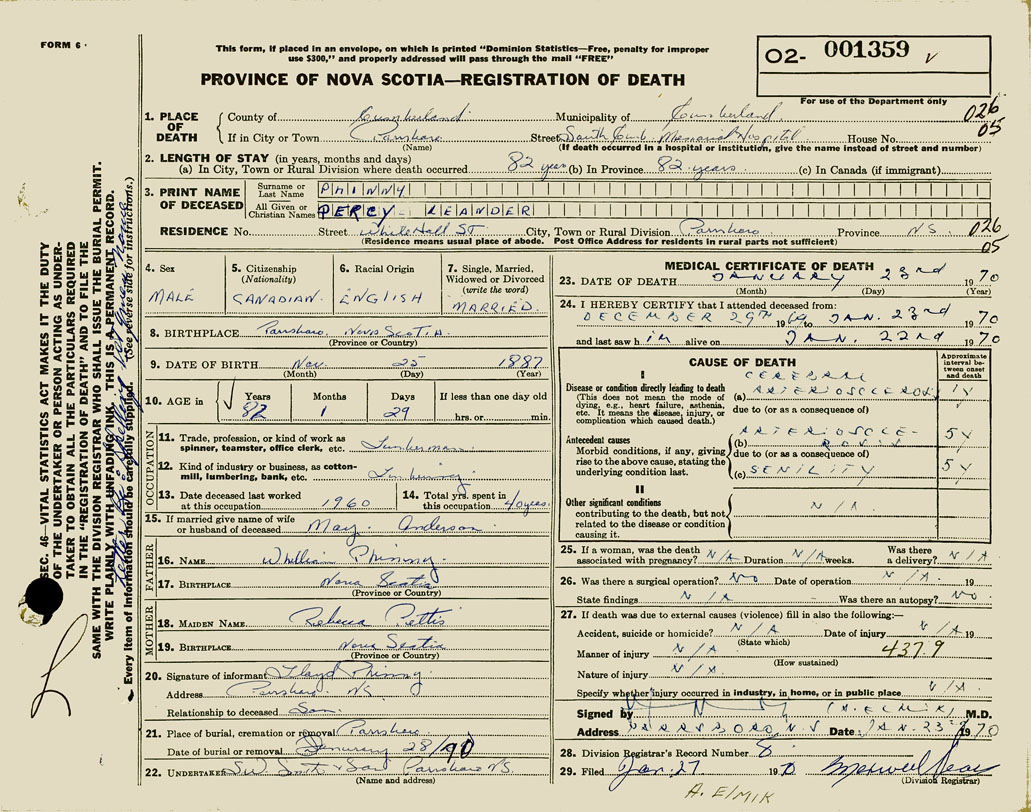 FORM 6
This form, if placed in an envelope, on which is printed "Dominion Statistics—Free, penalty for improper
use $300," and properly addressed will pass through the mail "FREE"
PROVINCE OF NOVA SCOTIA—REGISTRATION OF DEATH
O2- 001359
For use of the Department only
1. PLACE OF DEATH
County of Cumberland Municipality of Cumberland 026
If in City or Town Parrsboro Street South Cumb. Memorial Hospital House No. 05
(Name) (If death occurred in a hospital or institution, give the name instead of street and number)
2. LENGTH OF STAY (in years, months and days)
(a) In City, Town or Rural Division where death occurred 82 years (b) In Province 82 years. (c) In Canada (if immigrant)
3. PRINT NAME OF DECEASED
Surname or Last Name PHINNY
All Given or Christian Names PERCY LEANDER
RESIDENCE No. Street WhiteHall ST. City, Town or Rural Division Parrsboro Province N.S. 026
(Residence means usual place of abode. Post Office Address for residents in rural parts not sufficient) 05
4. Sex
MALE
5. Citizenship
(Nationality)
CANADIAN.
6. Racial Origin
ENGLISH
7. Single, Married,
Widowed or Divorced
(write the word)
MARRIED.
8. BIRTHPLACE Parrsboro, Nova Scotia.
(Province or Country)
9. DATE OF BIRTH Nov. 25 1887
(Month) (Day) (Year)
10. AGE in Years Months Days If less than one day old
82 1 29 hrs. or min.
OCCUPATION
11. Trade, profession, or kind of work as
spinner, teamster, office clerk, etc. Lumberman
12. Kind of industry or business, as cotton-
mill, lumbering, bank, etc. Lumbering
13. Date deceased last worked
at this occupation 1960
14. Total yrs. spent in
this occupation 40 years
15. If married give name of wife
or husband of deceased May Anderson
FATHER
16. NAME William Phinny
17. BIRTHPLACE Nova Scotia
(Province or Country)
MOTHER
18. MAIDEN NAME Rebecca Pettis
19. BIRTHPLACE Nova Scotia
(Province or Country)
20. Signature of informant Floyd Phinny
Address Parrsboro NS
Relationship to deceased Son.
21. Place of burial, cremation or removal Parrsboro
Date of burial or removal January 28/70
22. UNDERTAKER Smith & Son Parrsboro N.S.
(Name and address)
MEDICAL CERTIFICATE OF DEATH
23. DATE OF DEATH JANUARY 23rd 1970
(Month) (Day) (Year)
24. I HEREBY CERTIFY that I attended deceased from:
DECEMBER 29TH 1969 to JAN. 23rd 1970
and last saw him alive on JAN. 22nd 1970
CAUSE OF DEATH
Approximate
interval between
onset and
death
I
Disease or condition directly leading to death
(This does not mean the mode of
dying, e.g., heart failure, asthenia,
etc. It means the disease, injury, or
complication which caused death.)
CEREBRAL
(a) ARTERIOSCLEROSIS 1Y
due to (or as a consequence of)
Antecedent causes
Morbid conditions, if any, giving
rise to the above cause, stating the
underlying condition last.
(b) ARTERIOSCLE-
ROSIS 5Y
due to (or as a consequence of)
(c) SENILITY 5Y
II
Other significant conditions
contributing to the death, but not
related to the disease or condition
causing it.
N/A
25. If a woman, was the death
associated with pregnancy? N/A Duration N/A weeks. Was there
a delivery? N/A
26. Was there a surgical operation? NO Date of operation N/A. 19
State findings N/A Was there an autopsy? NO
27. If death was due to external causes (violence) fill in also the following:—
Accident, suicide or homicide? N/A Date of injury N/A 19
(State which)
Manner of injury N/A 437.9
(How sustained)
Nature of injury N/A
Specify whether injury occurred in industry, in home, or in public place N/A
Signed by (A. ELMIK) M.D.
Address PARRSBORO, NS Date: JAN. 23rd 1970
28. Division Registrar's Record Number 8
29. Filed Jan. 27 1970
(Division Registrar)
A. ELMIK
SEC. 46—VITAL STATISTICS ACT MAKES IT THE DUTY
OF THE UNDERTAKER OR PERSON ACTING AS UNDER-
TAKER TO OBTAIN ALL THE PARTICULARS REQUIRED
IN THE "REGISTRATION OF DEATH" AND TO FILE THE
SAME WITH THE DIVISION REGISTRAR WHO SHALL ISSUE THE BURIAL PERMIT.
WRITE PLAINLY WITH UNFADING INK. THIS IS A PERMANENT RECORD.
Every item of information should be carefully supplied. (See reverse side for instructions.)